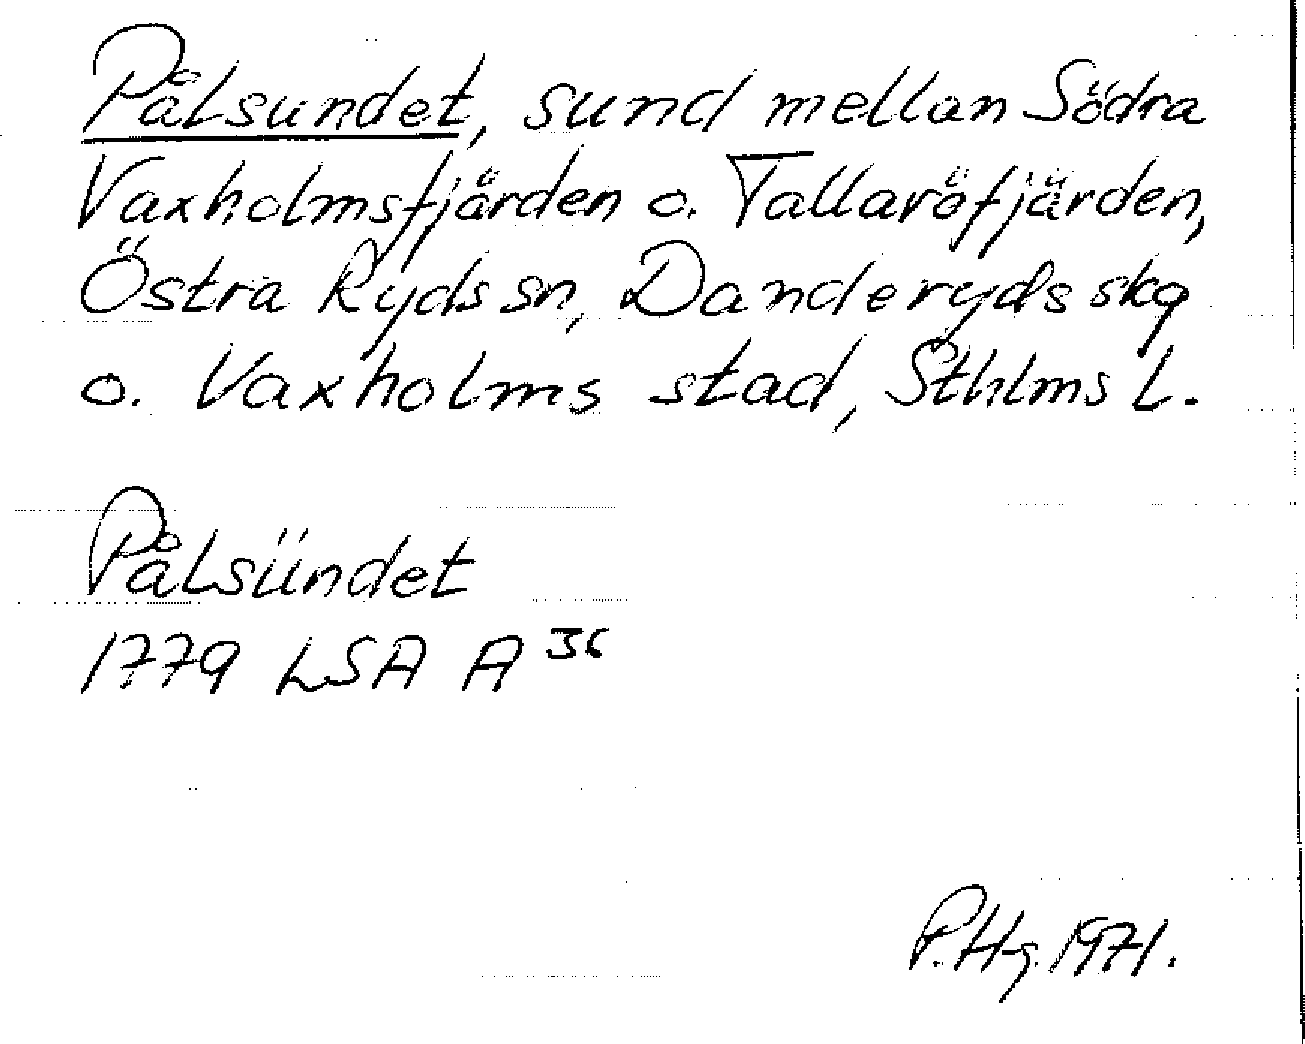 Pålsundet, sund mellan Södra
Vaxholmsfjärden o. Tallaröfjärden,
Östra Ryds sn, Danderyds skg
o. Vaxholms stad, Sthlms L.
Pålsündet
1779 LSA A 36
P. Hg. 1971.